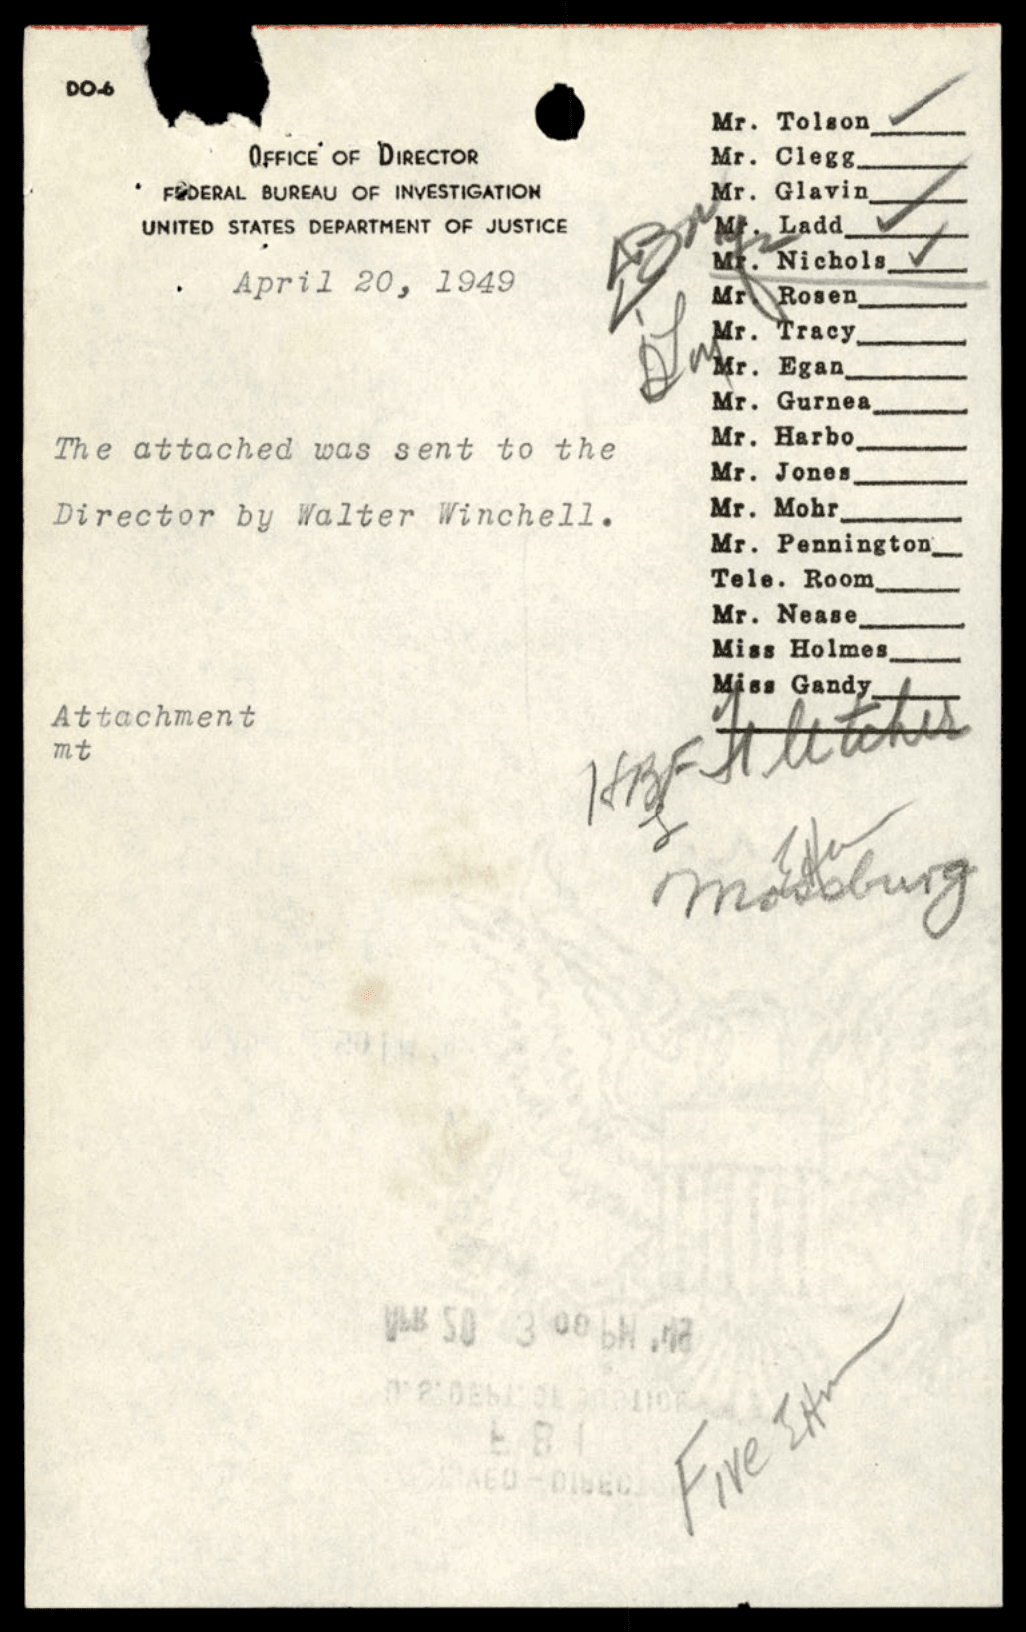 DO-6
OFFICE OF DIRECTOR
FEDERAL BUREAU OF INVESTIGATION
UNITED STATES DEPARTMENT OF JUSTICE
April 20, 1949
The attached was sent to the
Director by Walter Winchell.
Attachment
mt
Mr. Tolson
Mr. Clegg
Mr. Glavin
Mr. Ladd
Mr. Nichols
Mr. Rosen
Mr. Tracy
Mr. Egan
Mr. Gurnea
Mr. Harbo
Mr. Jones
Mr. Mohr
Mr. Pennington
Tele. Room
Mr. Nease
Miss Holmes
Miss Gandy
Fletcher
HBF
Mossburg
APR 20 3 00 PM '49
U.S. DEPT OF JUSTICE
F B I
Five